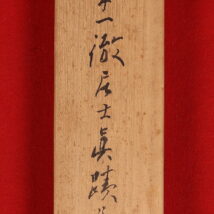 一徹居士真蹟